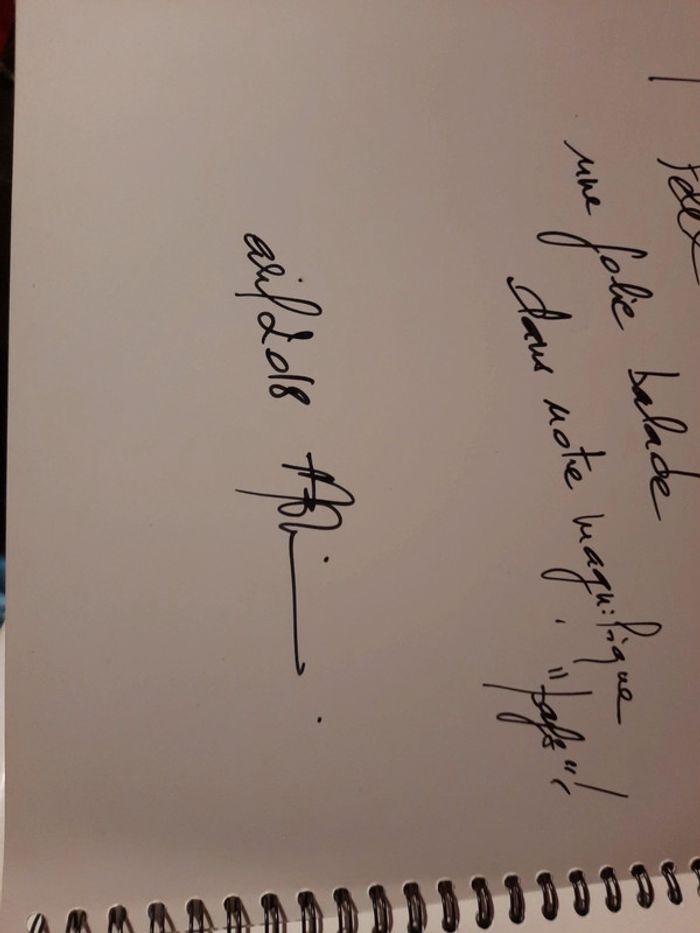 une folie balade
dans notre magnifique
"pays" !
avril 2018